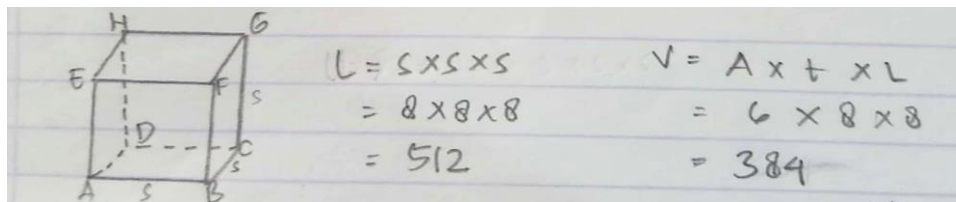 H G
E F
s
D C
s
A s B
L = s x s x s
= 8 x 8 x 8
= 512
V = A x t x L
= 6 x 8 x 8
= 384